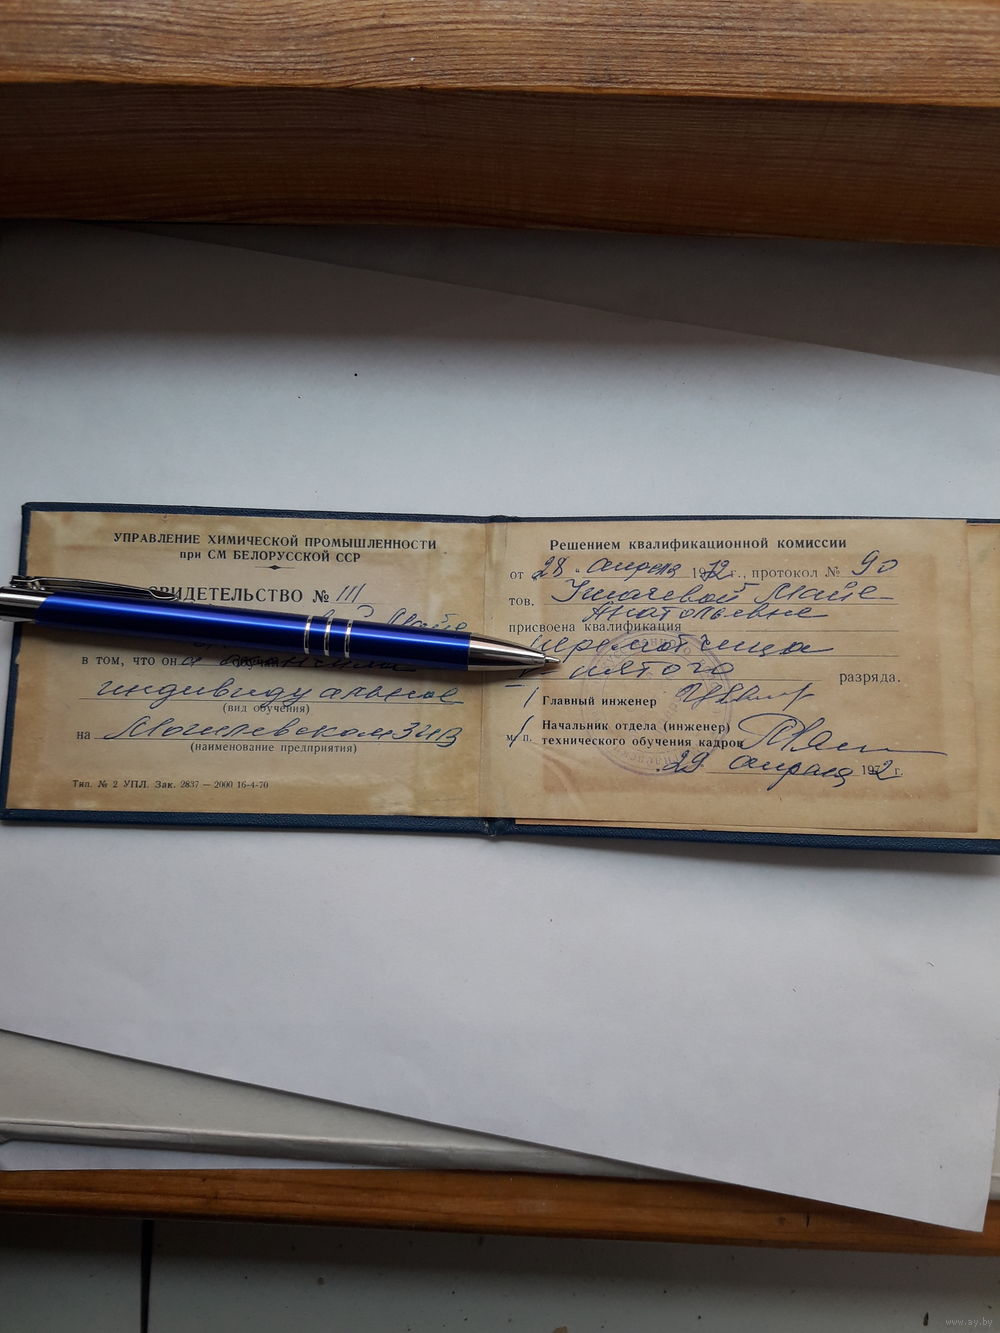 УПРАВЛЕНИЕ ХИМИЧЕСКОЙ ПРОМЫШЛЕННОСТИ
при СМ БЕЛОРУССКОЙ ССР
СВИДЕТЕЛЬСТВО № 111
Майе
в том, что она
индивидуальное
(вид обучения)
на Могилевском ЗИВ
(наименование предприятия)
Тип. № 2 УПЛ. Зак. 2837 — 2000 16-4-70
Решением квалификационной комиссии
от 28 апреля 1972 г., протокол № 90
тов. Майе
Анатольевне
присвоена квалификация
перемотчица
пятого разряда.
Главный инженер
Начальник отдела (инженер)
м. п. технического обучения кадров
29 апреля 1972 г.
www.ay.by